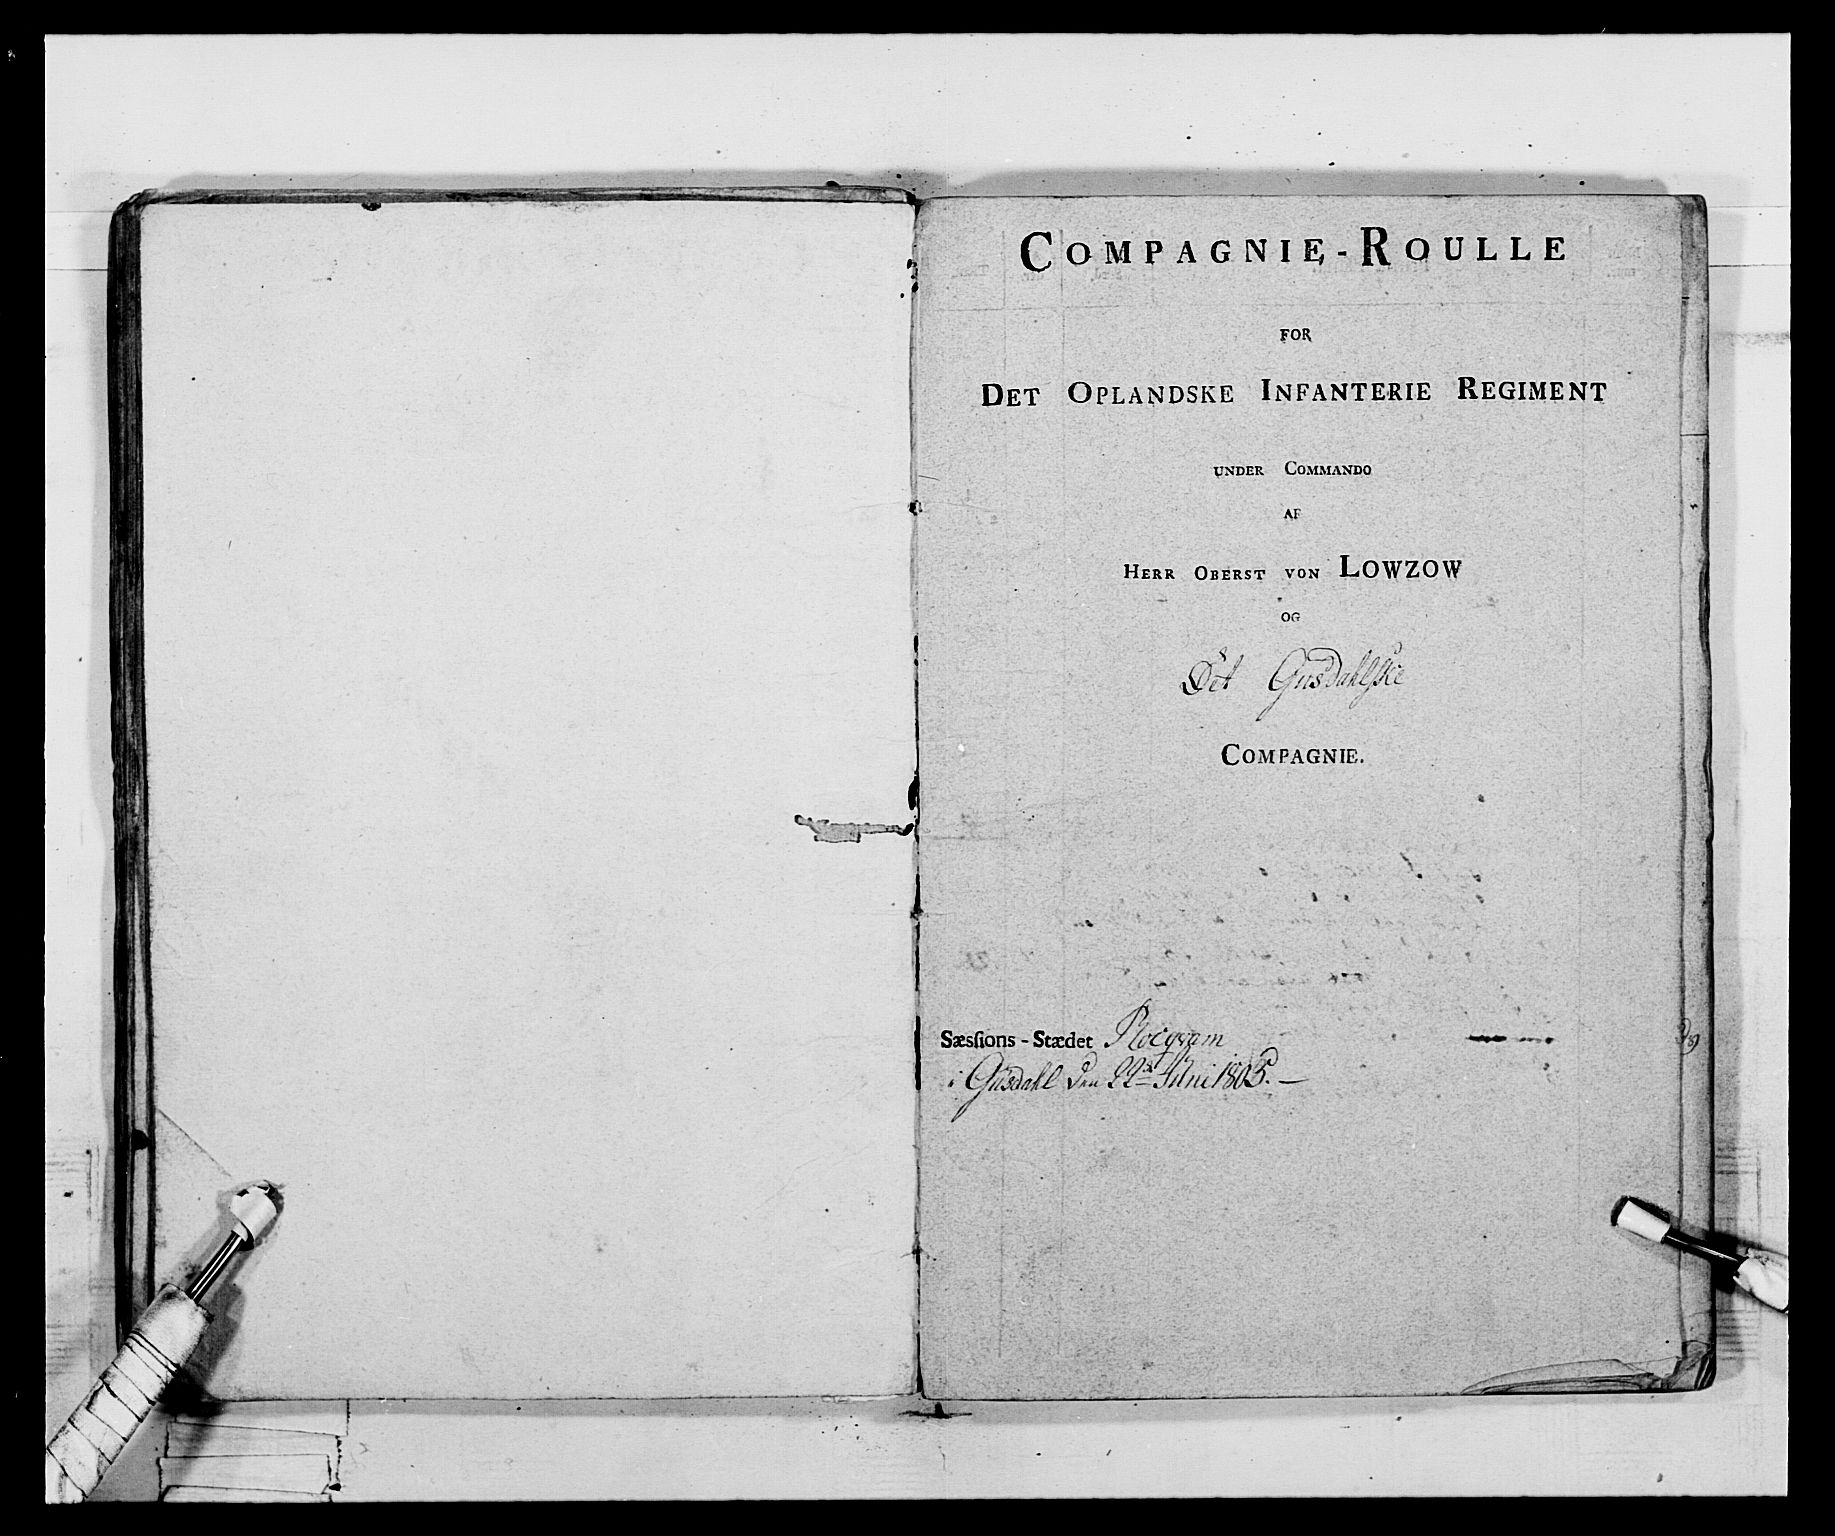 COMPAGNIE-ROULLE
FOR
DET OPLANDSKE INFANTERIE REGIMENT
UNDER COMMANDO
AF
HERR OBERST VON LOWZOW
OG
Det Gusdahlske
COMPAGNIE.
Sæsſions-Stædet
i Gusdahl den 22de Juni 1805.—